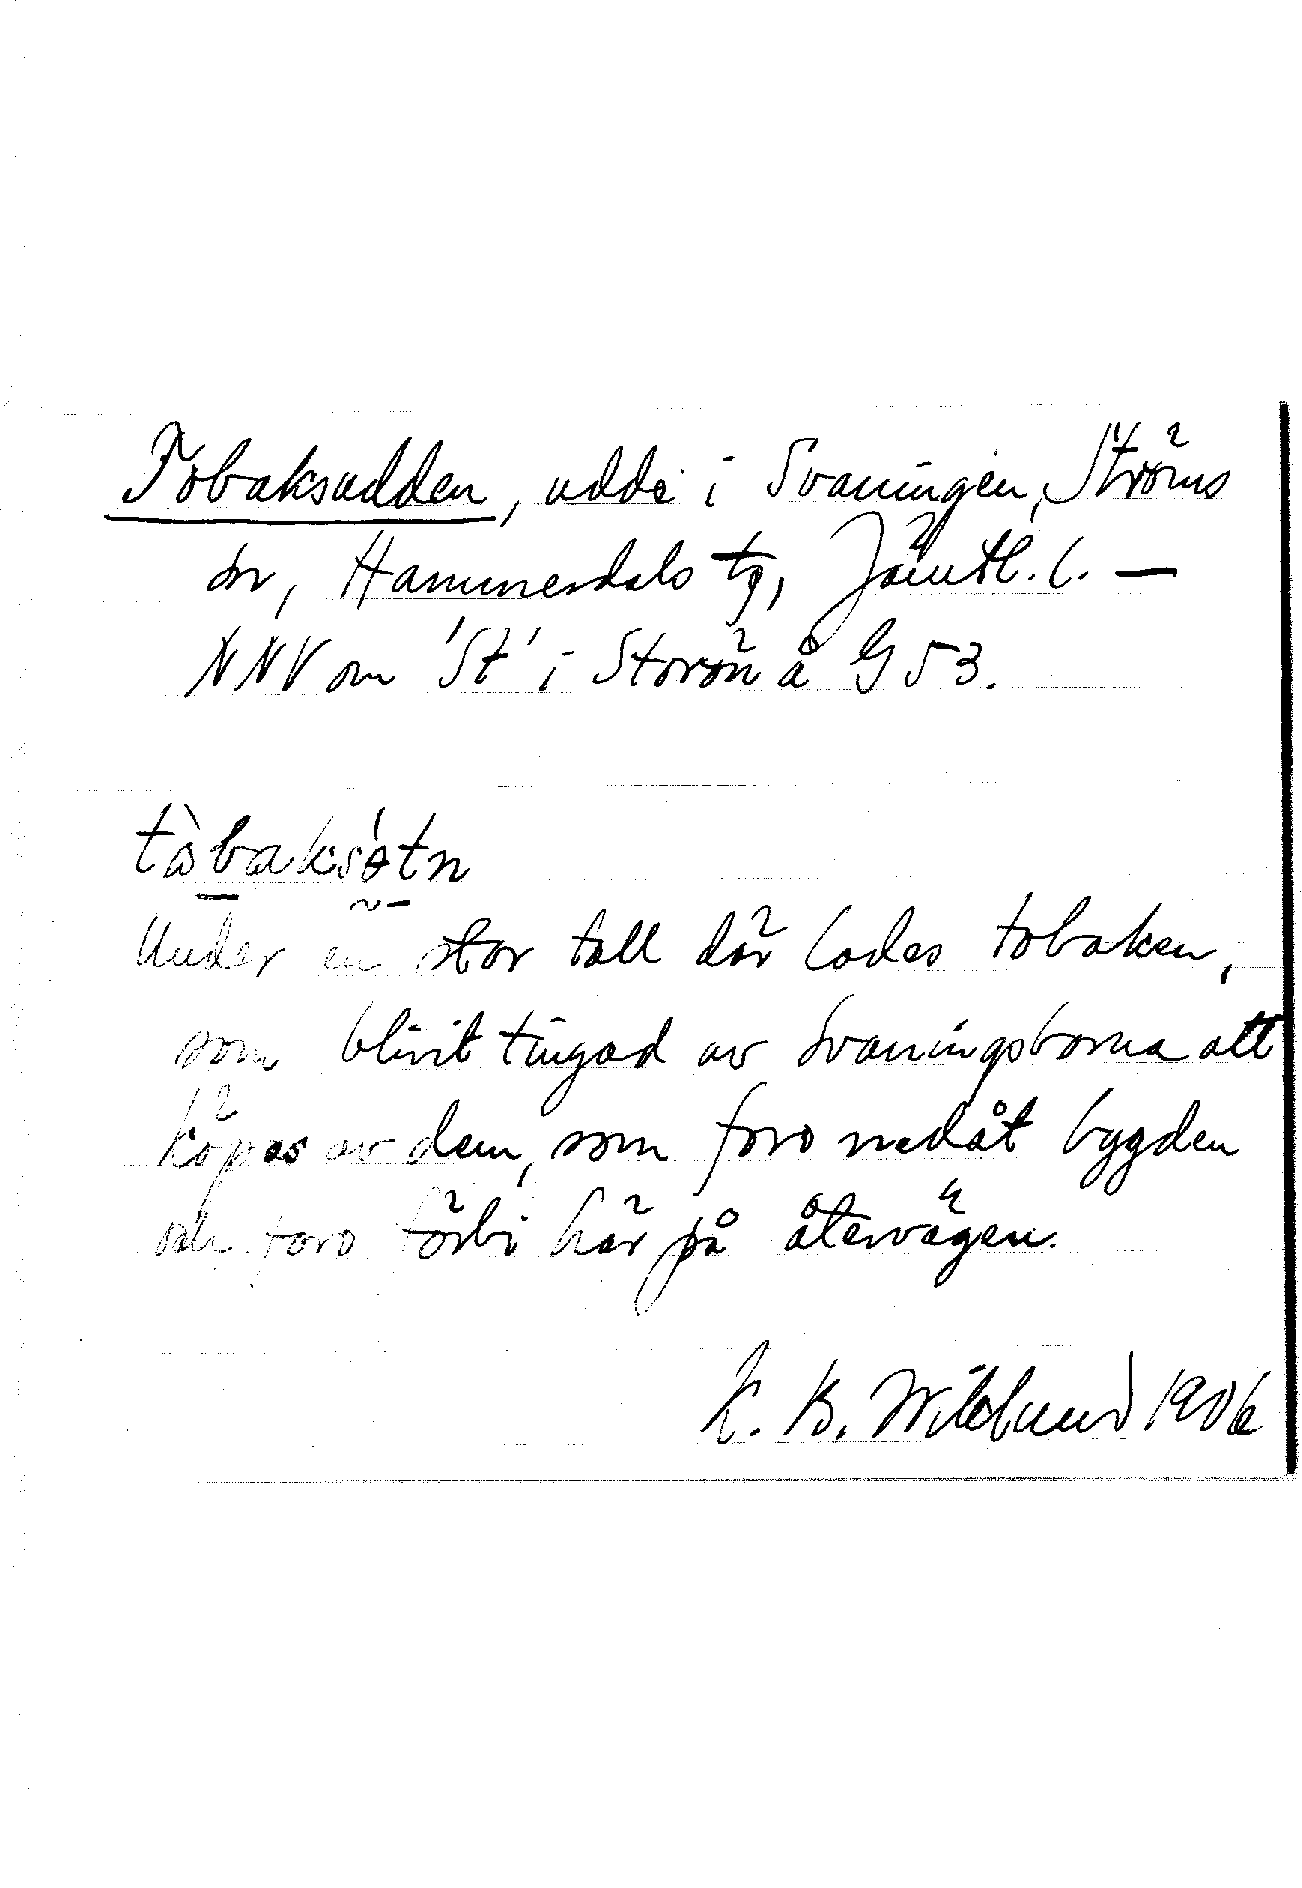 Tobaksudden, udde i Svaningen, Ströms
sn, Hammerdals tg, Jämtl. l. —
NNV om 'St' i Storön å G 53.
tòbaksótn
Under en stor tall där lades tobaken,
som blivit tingad av Svaningsborna att
köpas av dem, som foro nedåt bygden
och foro förbi här på återvägen.
K. B. Wiklund 1906